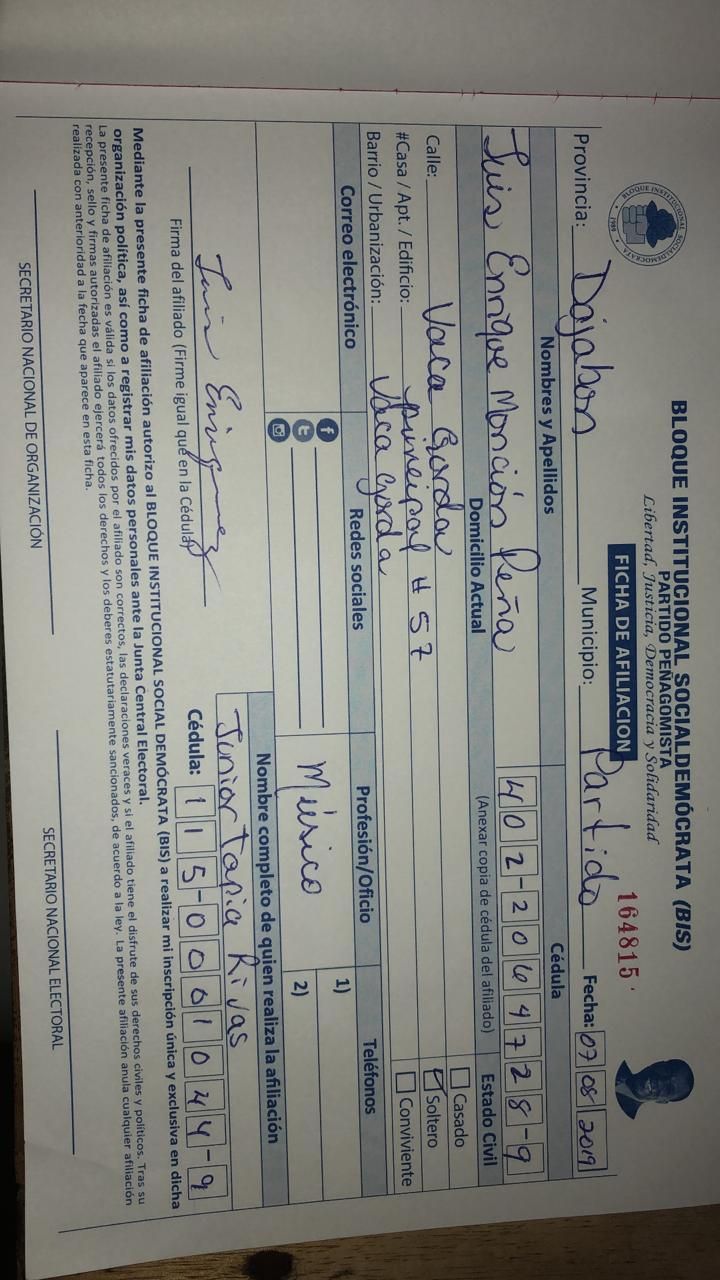 BLOQUE INSTITUCIONAL SOCIALDEMÓCRATA (BIS)
PARTIDO PEÑAGOMISTA
Libertad, Justicia, Democracia y Solidaridad
BLOQUE INSTITUCIONAL SOCIALDEMOCRATA
1989
FICHA DE AFILIACION
164815
Provincia: Dajabon Municipio: Partido Fecha: 07 08 2019
Nombres y Apellidos Cédula
Luis Enrique Monción Peña 402-2064728-9
Domicilio Actual (Anexar copia de cédula del afiliado) Estado Civil
Calle: Vaca Gorda
#Casa / Apt. / Edificio: principal # 57
Barrio / Urbanización: Vaca gorda
Casado
Soltero
Conviviente
Correo electrónico Redes sociales Profesión/Oficio Teléfonos
Músico
1)
2)
Nombre completo de quien realiza la afiliación
Junior Tapia Rivas
Luis Enrique
Firma del afiliado (Firme igual que en la Cédula)
Cédula: 115-0001044-9
Mediante la presente ficha de afiliación autorizo al BLOQUE INSTITUCIONAL SOCIAL DEMÓCRATA (BIS) a realizar mi inscripción única y exclusiva en dicha
organización política, así como a registrar mis datos personales ante la Junta Central Electoral.
La presente ficha de afiliación es válida si los datos ofrecidos por el afiliado son correctos, las declaraciones veraces y si el afiliado tiene el disfrute de sus derechos civiles y políticos. Tras su
recepción, sello y firmas autorizadas el afiliado ejercerá todos los derechos y los deberes estatutariamente sancionados, de acuerdo a la ley. La presente afiliación anula cualquier afiliación
realizada con anterioridad a la fecha que aparece en esta ficha.
SECRETARIO NACIONAL DE ORGANIZACIÓN SECRETARIO NACIONAL ELECTORAL